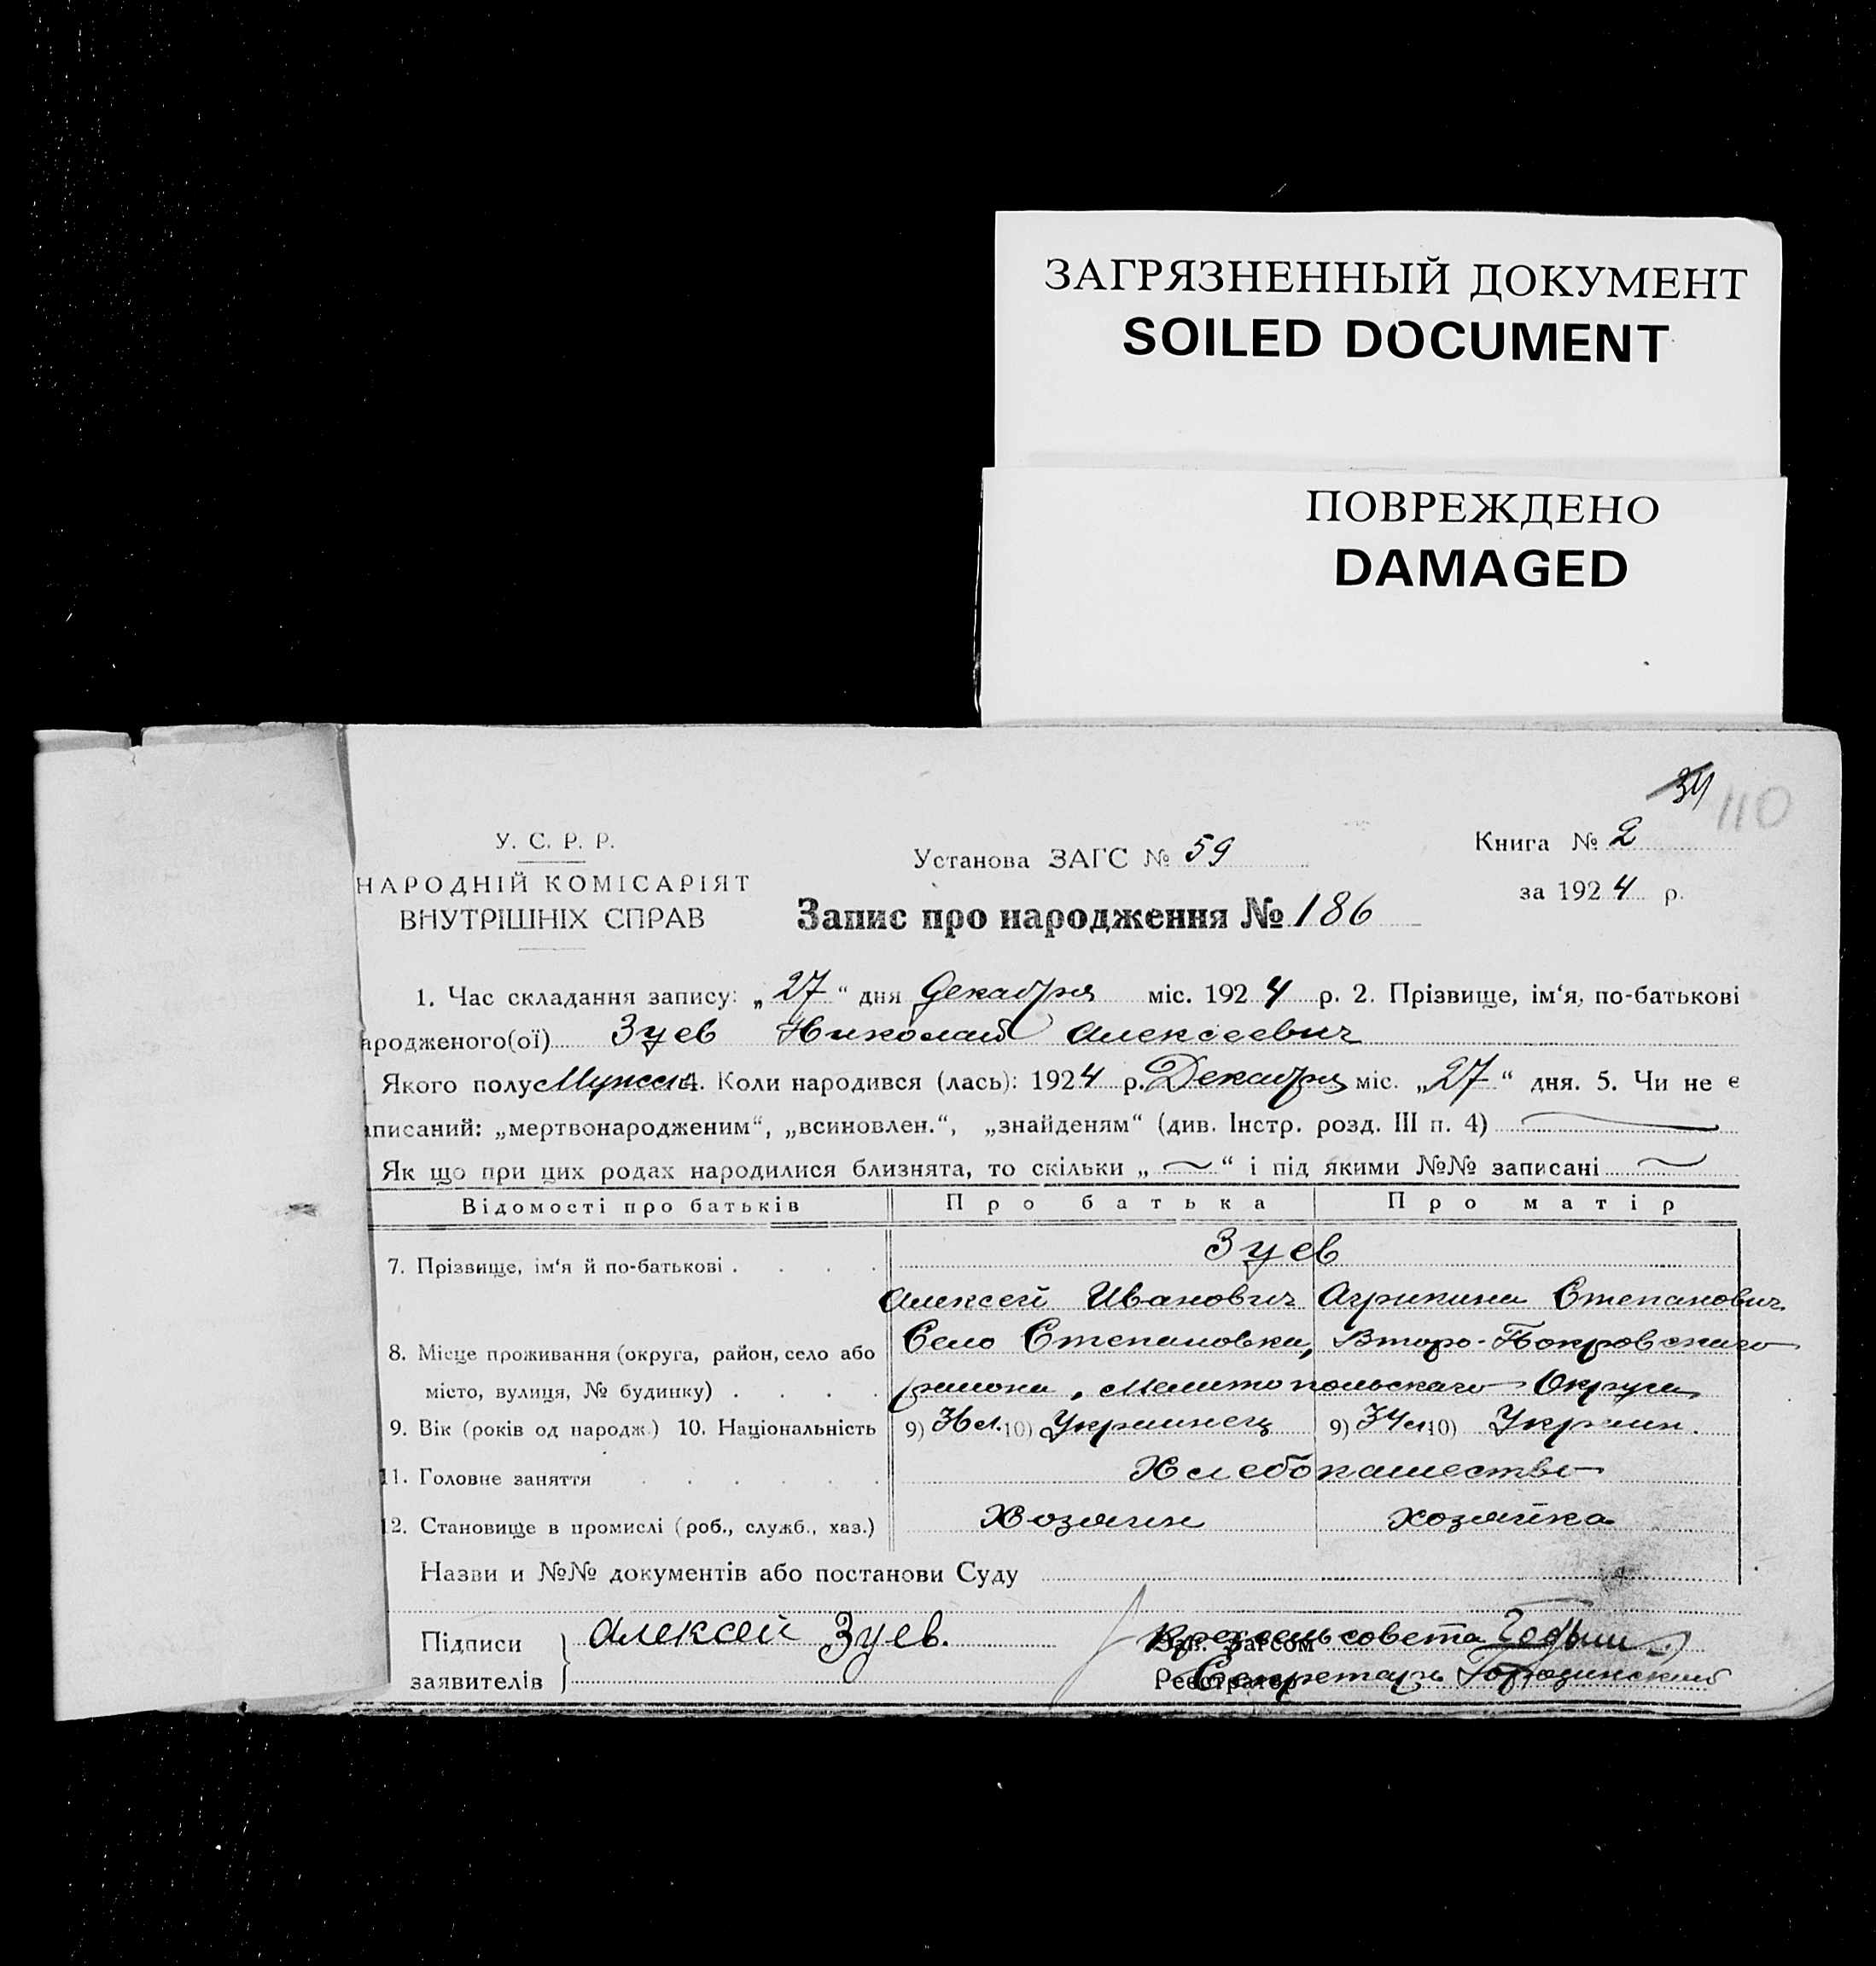 ЗАГРЯЗНЕННЫЙ ДОКУМЕНТ
SOILED DOCUMENT
ПОВРЕЖДЕНО
DAMAGED
34 110
У. С. Р. Р.
НАРОДНІЙ КОМІСАРІЯТ
ВНУТРІШНІХ СПРАВ
Установа ЗАГС № 59
Запис про народження № 186
Книга № 2
за 1924 р.
1. Час складання запису: „27“ дня Декабря міс. 1924 р. 2. Прізвище, ім‘я, по-батькові
ародженого(ої) Зуев Николай Алексеевич
Якого полу Мужск 4. Коли народився (лась): 1924 р. Декабря міс. „27“ дня. 5. Чи не є
аписаний: „мертвонародженим“, „всиновлен.“, „знайденям“ (див. Інстр. розд. III п. 4)
Як що при цих родах народилися близнята, то скільки „ “ і під якими №№ записані
Відомості про батьків Про батька Про матір
7. Прізвище, ім‘я й по-батькові . . . . Зуев
Алексей Иванович Агрипина Степанович
8. Місце проживання (округа, район, село або Село Степановка, Второ-Покровскаго
місто, вулиця, № будинку) . . . . района, Мелитопольскаго Округа
9. Вік (років од народж.) 10. Національність 9) 36 л. 10) Украинец 9) 34 л. 10) Украин.
11. Головне заняття . . . . . Хлебопашество
12. Становище в промислі (роб., служб., хаз.) Хозяин хозяйка
Назви и №№ документів або постанови Суду
Підписи Алексей Зуев. Зав. Загсом Предсельсовета
заявителів Реєстратор Секретарь Городинский